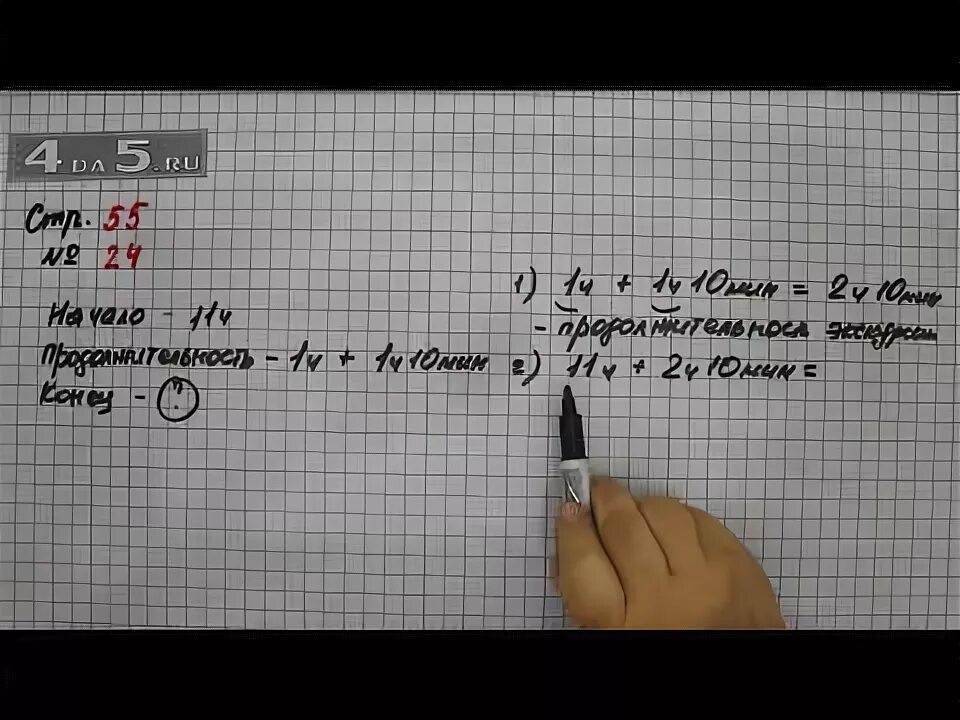 4 DA 5.RU
Стр. 55
№ 24
Начало - 11ч
Продолжительность - 1ч + 1ч 10мин
Конец - ?
1) 1ч + 1ч 10мин = 2ч 10мин
- продолжительност экскурсии
2) 11ч + 2ч 10мин =